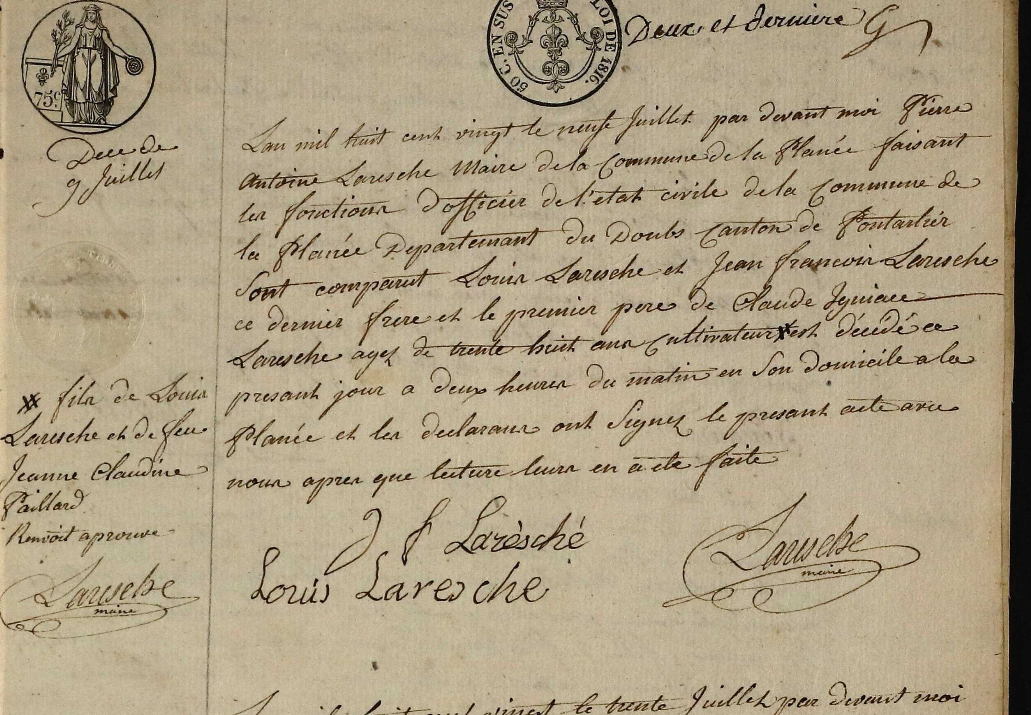 50 C. EN SUS
LOI DE 1816.
Deux et derniere
75c
Dece de
9 Juillet
Lan mil huit cent vingt le neuf Juillet par devant moi Pierre
antoine Laresche Maire de la Commune de la Planée faisant
les fonctions d'officier de l'etat civile de la Commune de
la Planée Departemant du Doubs Canton de Pontarlier
Sont comparut Louis Laresche et Jean francois Laresche
ce dernier frere et le premier pere de Claude Igniace
Laresche agez de trente huit ans Cultivateur X est décédé ce
presant jour a deux heures du matin en Son domicile a la
Planée et les declarans ont Signez le presant acte avec
nous apres que lecture leurs en a ete faite
X fils de Louis
Laresche et de feu
Jeanne Claudine
Paillard
Renvoit aprouve
Laresche
maire
J f Larèsché
Louis Laresche
Laresche
maire
Lan mil huit cent vingt le trente Juillet par devant moi